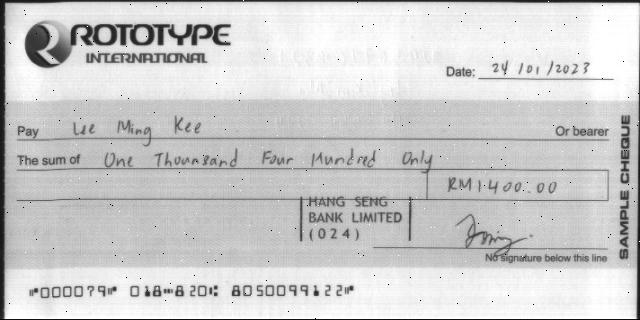 ROTOTYPE
INTERNATIONAL
Date: 24/01/2023
Pay Lee Ming Kee Or bearer
The sum of One Thounsand Four Hundred Only
RM1400.00
HANG SENG
BANK LIMITED
(024)
No signature below this line
SAMPLE CHEQUE
⑈000079⑈ 018⑉820⑆ 8050099122⑈